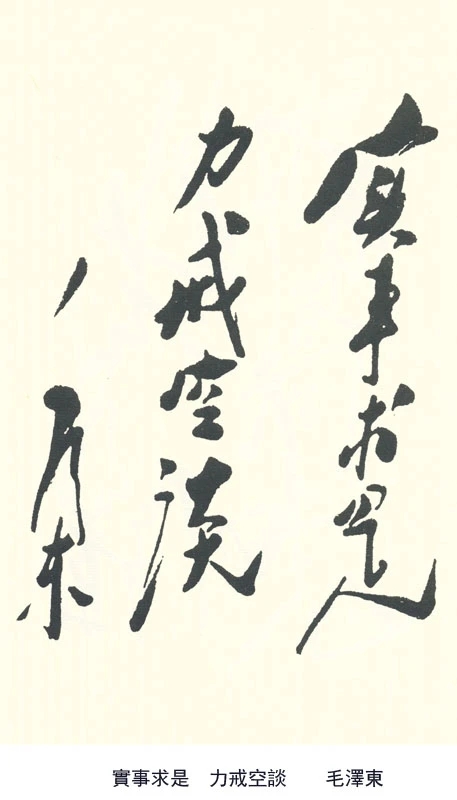 實事求是
力戒空談
毛澤東
實事求是 力戒空談 毛澤東